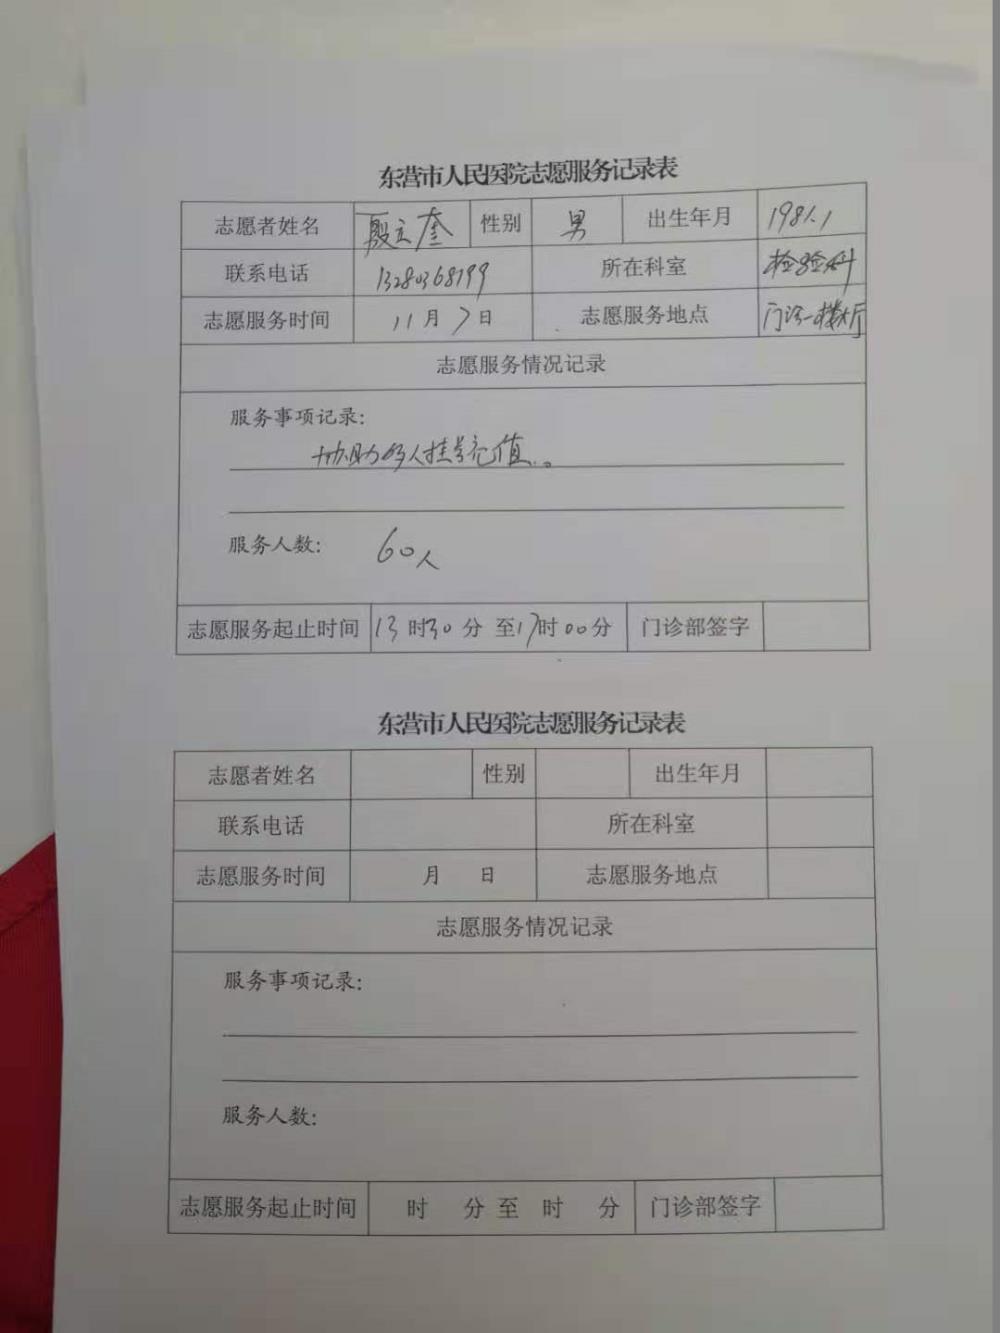 东营市人民医院志愿服务记录表
志愿者姓名 殷立奎 性别 男 出生年月 1981.1
联系电话 所在科室 检验科
志愿服务时间 11月7日 志愿服务地点 门诊一楼大厅
志愿服务情况记录
服务事项记录:
协助多人挂号充值。
服务人数: 60人
志愿服务起止时间 13时30分至17时00分 门诊部签字
东营市人民医院志愿服务记录表
志愿者姓名 性别 出生年月
联系电话 所在科室
志愿服务时间 月 日 志愿服务地点
志愿服务情况记录
服务事项记录:
服务人数:
志愿服务起止时间 时 分至 时 分 门诊部签字